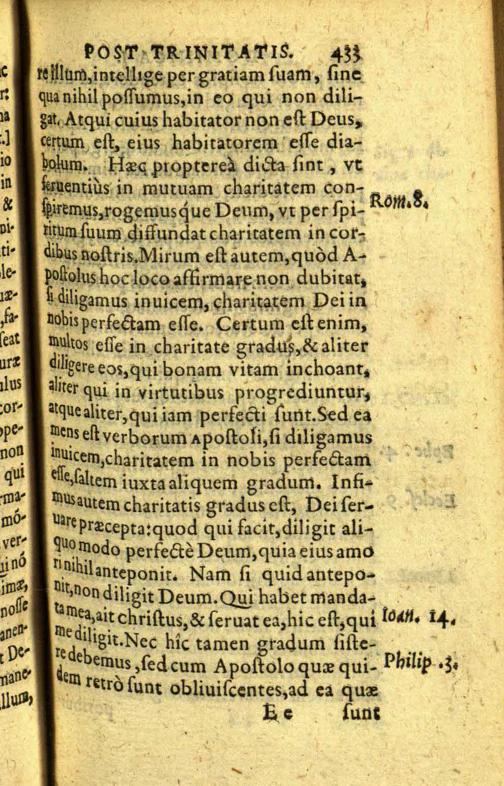 POST TRINITATIS. 433
re illum, intellige per gratiam ſuam, ſine
qua nihil poſſumus, in eo qui non dili-
gat. Atqui cuius habitator non eſt Deus,
certum eſt, eius habitatorem eſſe dia-
bolum. Hæc proptereà dicta ſint, vt
feruentiùs in mutuam charitatem con-
ſpiremus, rogemuſque Deum, vt per ſpi- Rom. 8.
ritum ſuum diffundat charitatem in cor-
dibus noſtris. Mirum eſt autem, quòd A-
poſtolus hoc loco affirmare non dubitat,
ſi diligamus inuicem, charitatem Dei in
nobis perfectam eſſe. Certum eſt enim,
multos eſſe in charitate gradus, & aliter
diligere eos, qui bonam vitam inchoant,
aliter qui in virtutibus progrediuntur,
atque aliter, qui iam perfecti ſunt. Sed ea
mens eſt verborum Apoſtoli, ſi diligamus
inuicem, charitatem in nobis perfectam
eſſe, ſaltem iuxta aliquem gradum. Infi-
mus autem charitatis gradus eſt, Dei ſer-
uare præcepta: quod qui facit, diligit ali-
quo modo perfectè Deum, quia eius amo
ri nihil anteponit. Nam ſi quid antepo-
nit, non diligit Deum. Qui habet manda-
ta mea, ait chriſtus, & ſeruat ea, hic eſt, qui Ioan. 14.
me diligit. Nec hîc tamen gradum ſiſte-
re debemus, ſed cum Apoſtolo quæ qui- Philip. 3.
dem retrò ſunt obliuiſcentes, ad ea quæ
E e ſunt